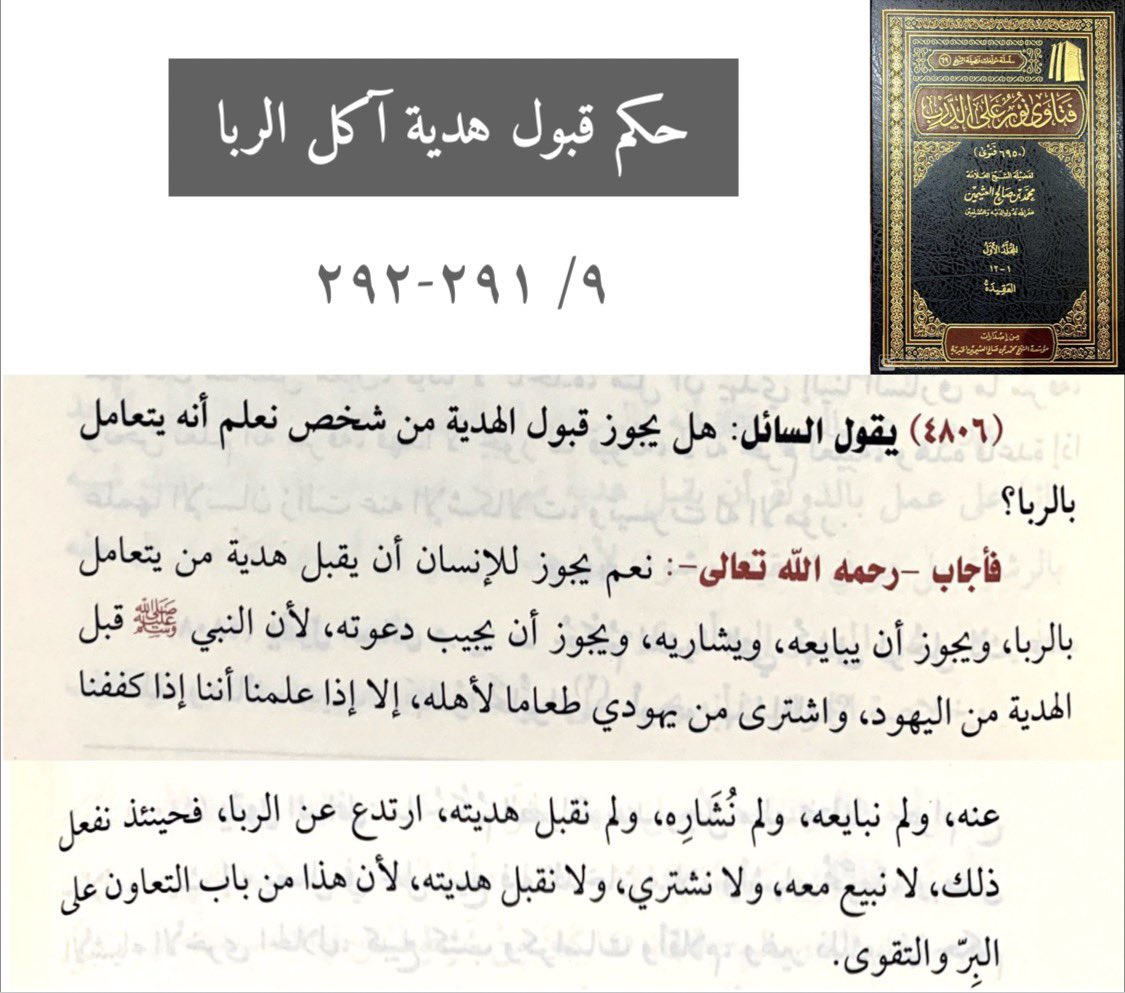 حكم قبول هدية آكل الربا
٩/ ٢٩١-٢٩٢
سلسلة مؤلفات فضيلة الشيخ (٦٩)
فتاوى نور على الدرب
(٦٩٥٠ فتوى)
لفضيلة الشيخ العلامة
محمد بن صالح العثيمين
غفر الله له ولوالديه وللمسلمين
المجلد الأول
١-١٢
العقيدة
من إصدارات
مؤسسة الشيخ محمد بن صالح العثيمين الخيرية
(٤٨٠٦) يقول السائل: هل يجوز قبول الهدية من شخص نعلم أنه يتعامل
بالربا؟
فأجاب -رحمه الله تعالى-: نعم يجوز للإنسان أن يقبل هدية من يتعامل
بالربا، ويجوز أن يبايعه، ويشاريه، ويجوز أن يجيب دعوته، لأن النبي ﷺ قبل
الهدية من اليهود، واشترى من يهودي طعاما لأهله، إلا إذا علمنا أننا إذا كففنا
عنه، ولم نبايعه، ولم نُشَارِه، ولم نقبل هديته، ارتدع عن الربا، فحينئذ نفعل
ذلك، لا نبيع معه، ولا نشتري، ولا نقبل هديته، لأن هذا من باب التعاون على
البِرّ والتقوى.